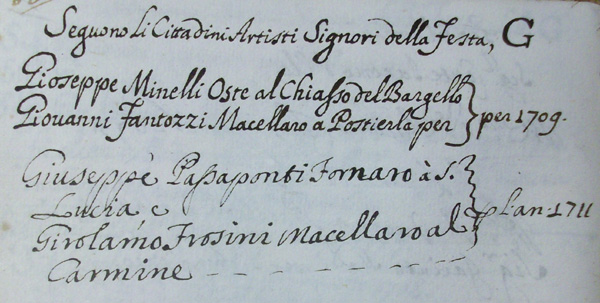 Seguono Li Cittadini Artisti Signori della Festa, G
Gioseppe Minelli Oste al Chiasso del Bargello
Giovanni Fantozzi Macellaro a Postierla per } per 1709.
Giuseppè Passaponti Fornaro à S.
Lucia, e
Girolamo Frosini Macellaro al } p l'an: 1711
Carmine